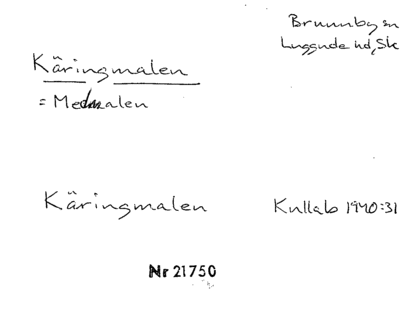 Brunnby sn
Luggude hd, Sk
Käringmalen
= Medmalen
Käringmalen
Kullab 1940:31
Nr 21750